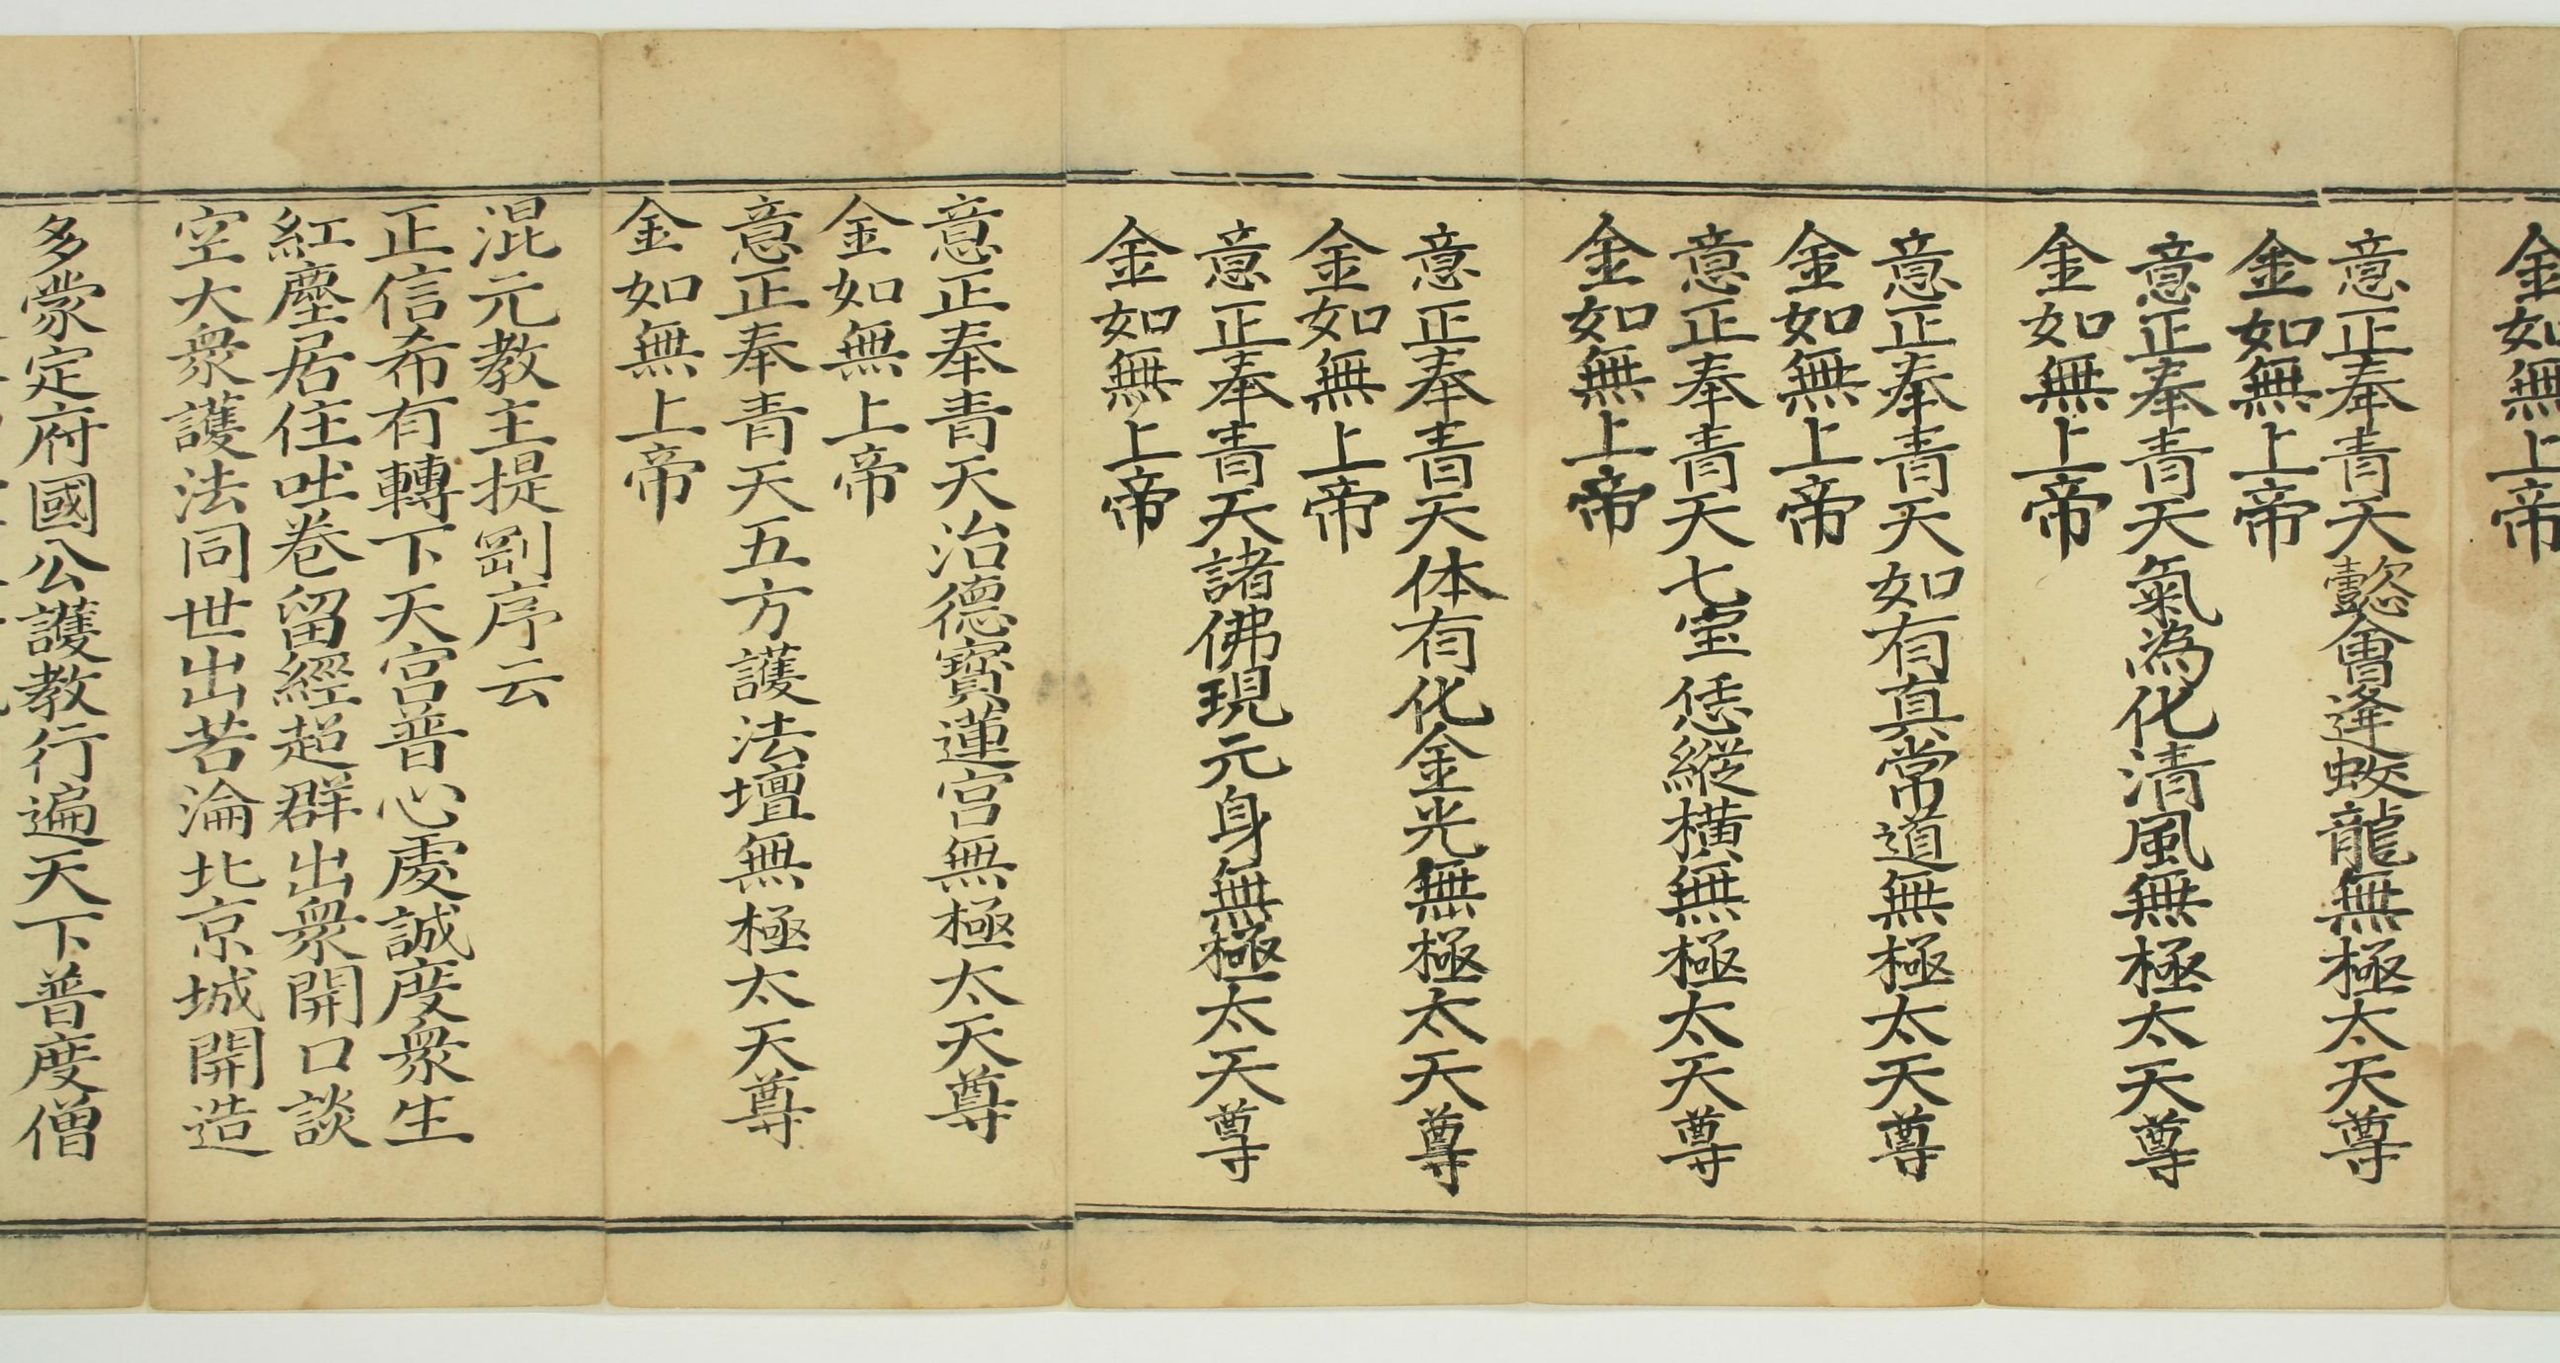 金如無上帝
意正奉青天懿會逢蛟龍無極太天尊
金如無上帝
意正奉青天氣為化清風無極太天尊
金如無上帝
意正奉青天如有真常道無極太天尊
金如無上帝
意正奉青天七宝恁縱橫無極太天尊
金如無上帝
意正奉青天体有化金光無極太天尊
金如無上帝
意正奉青天諸佛現元身無極太天尊
金如無上帝
意正奉青天治德寳蓮宮無極太天尊
金如無上帝
意正奉青天五方護法壇無極太天尊
金如無上帝
混元教主提劄序云
正信希有轉下天宮普心處誠度衆生
紅塵居住吐卷留經超群出衆開口談
空大衆護法同世出苦淪北京城開造
多蒙定府國公護教行遍天下普度僧